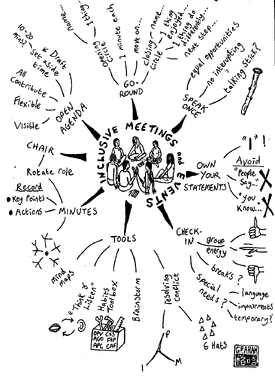 INCLUSIVE MEETINGS and EVENTS
GO-ROUND
Circle
1 minute each
move on...
closing circle
name...
1 thing enjoyed...
1 thing do differently...
next step...
SPEAK ONCE
equal opportunities
no interrupting
talking stick?
OWN YOUR STATEMENTS
"I"!
Avoid
"People say...
"you know...
CHECK-IN
group energy
breaks
special needs?
language
impairments
temporary?
resolving conflict
6 Hats
P
I
M
Brainstorm
Habits Toolbox
OPV C&S
AGO FIP
APC CAF
"Think & Listen"
mind maps
TOOLS
MINUTES
Record
Key Points
Actions
CHAIR
Rotate role
OPEN AGENDA
Draft
Set aside time
10-20 mins?
All Contribute
Flexible
Visible